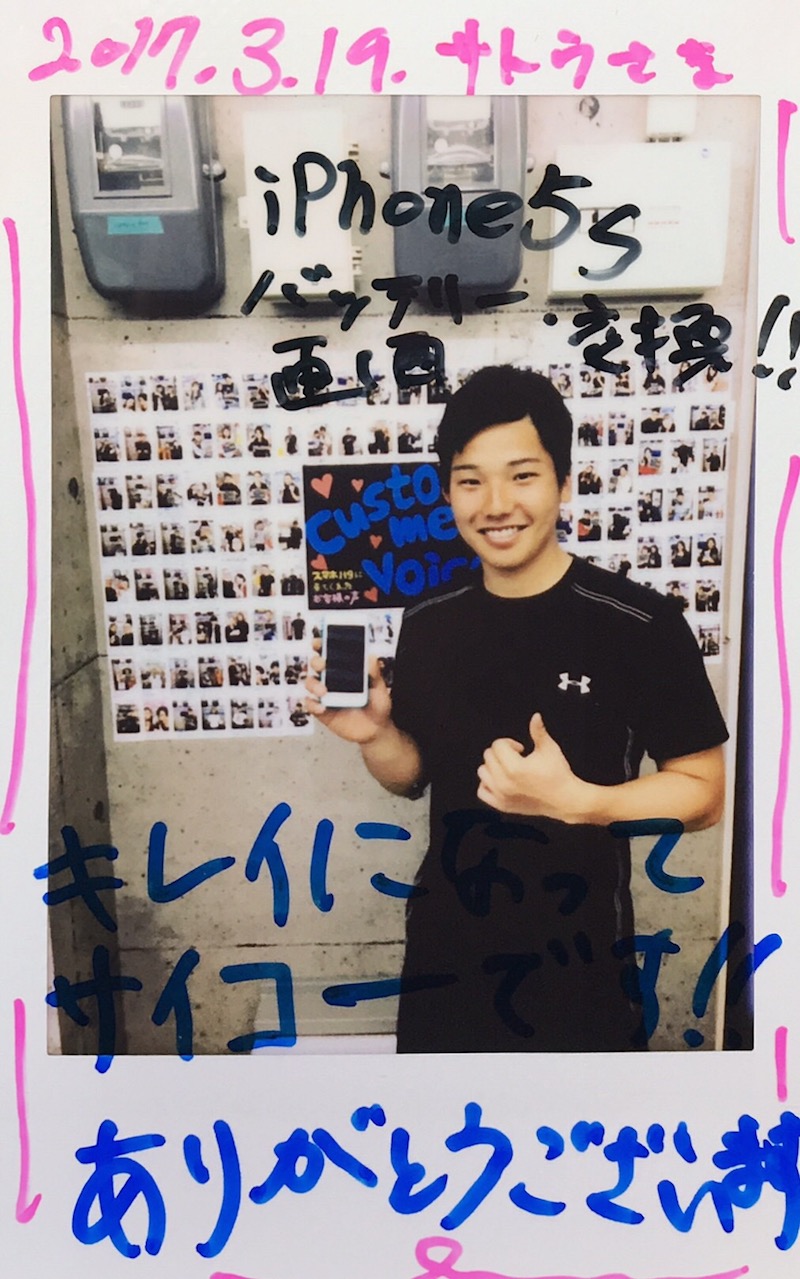 2017.3.19. サトウさま
iPhone5s
バッテリー・
画面 交換!!
Custo
me
Voic
スマホ119に
来てくれた
お客様の声
キレイになって
サイコーです!!
ありがとうございます